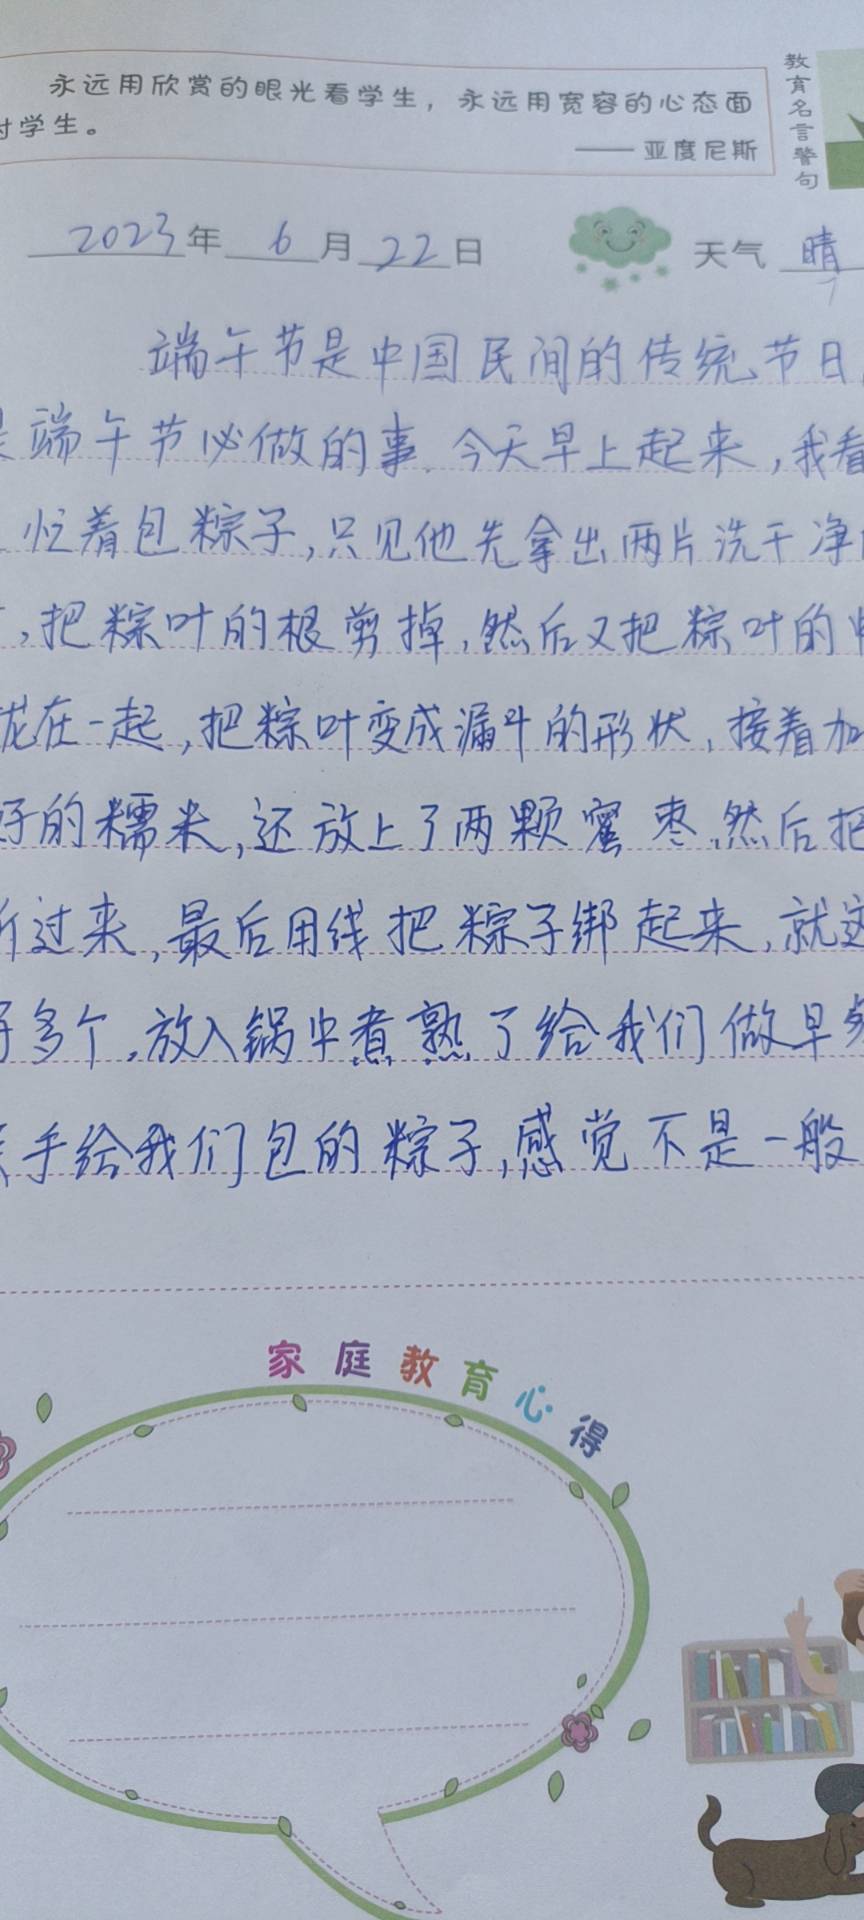 永远用欣赏的眼光看学生，永远用宽容的心态面
对学生。
——亚度尼斯
教育名言警句
2023年6月22日 天气 晴
端午节是中国民间的传统节日
是端午节必做的事.今天早上起来,我看
忙着包粽子,只见他先拿出两片洗干净
,把粽叶的根剪掉,然后又把粽叶的
拢在一起,把粽叶变成漏斗的形状,接着加
好的糯米,还放上了两颗蜜枣,然后把
折过来,最后用线把粽子绑起来,就这
好多个,放入锅中煮熟了给我们做早
手给我们包的粽子,感觉不是一般
家庭教育心得